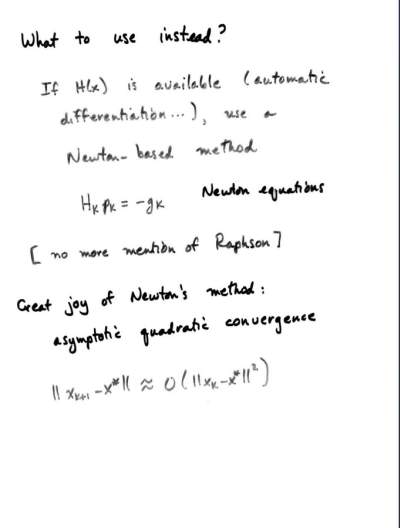 What to use instead?
If H(x) is available (automatic
differentiation...), use a
Newton-based method
H_k p_k = -g_k   Newton equations
[ no more mention of Raphson ]
Great joy of Newton's method:
asymptotic quadratic convergence
|| x_{k+1} - x* || ≈ O( || x_k - x* ||² )